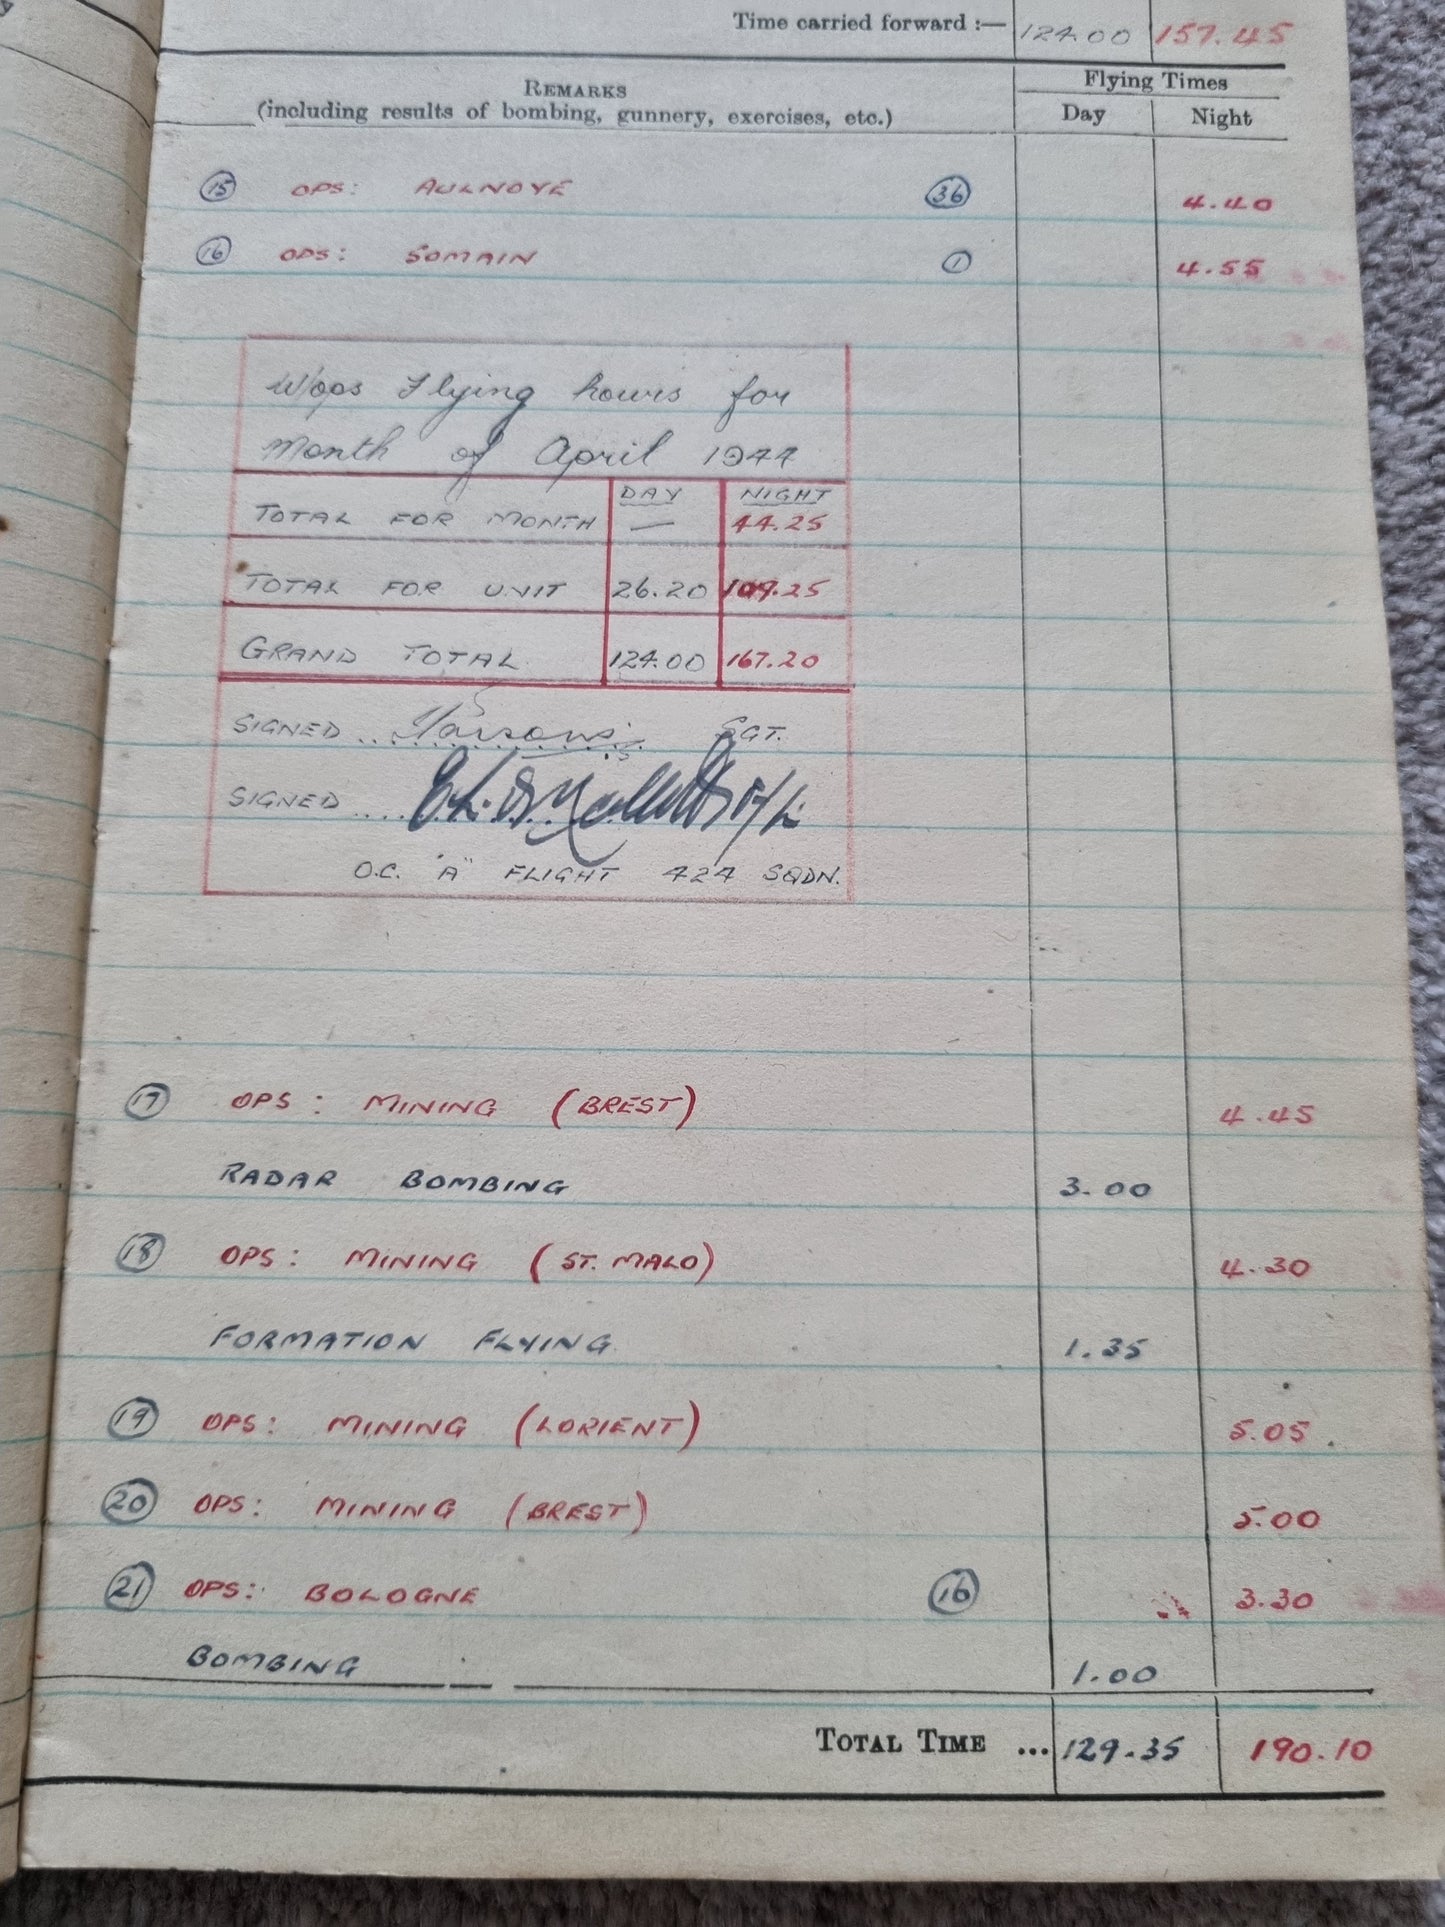 Time carried forward :— 124.00 157.45
REMARKS Flying Times
(including results of bombing, gunnery, exercises, etc.) Day Night
15 OPS: AULNOYE 36 4.40
16 OPS: SOMAIN 1 4.55
W/ops Flying hours for
Month of April 1944
DAY NIGHT
TOTAL FOR MONTH — 44.25
TOTAL FOR UNIT 26.20 109.25
GRAND TOTAL 124.00 167.20
SIGNED Parsons SGT.
SIGNED F/L
O.C. "A" FLIGHT 424 SQDN.
17 OPS: MINING (BREST) 4.45
RADAR BOMBING 3.00
18 OPS: MINING (ST. MALO) 4.30
FORMATION FLYING 1.35
19 OPS: MINING (LORIENT) 5.05
20 OPS: MINING (BREST) 5.00
21 OPS: BOLOGNE 16 3.30
BOMBING 1.00
TOTAL TIME ... 129.35 190.10